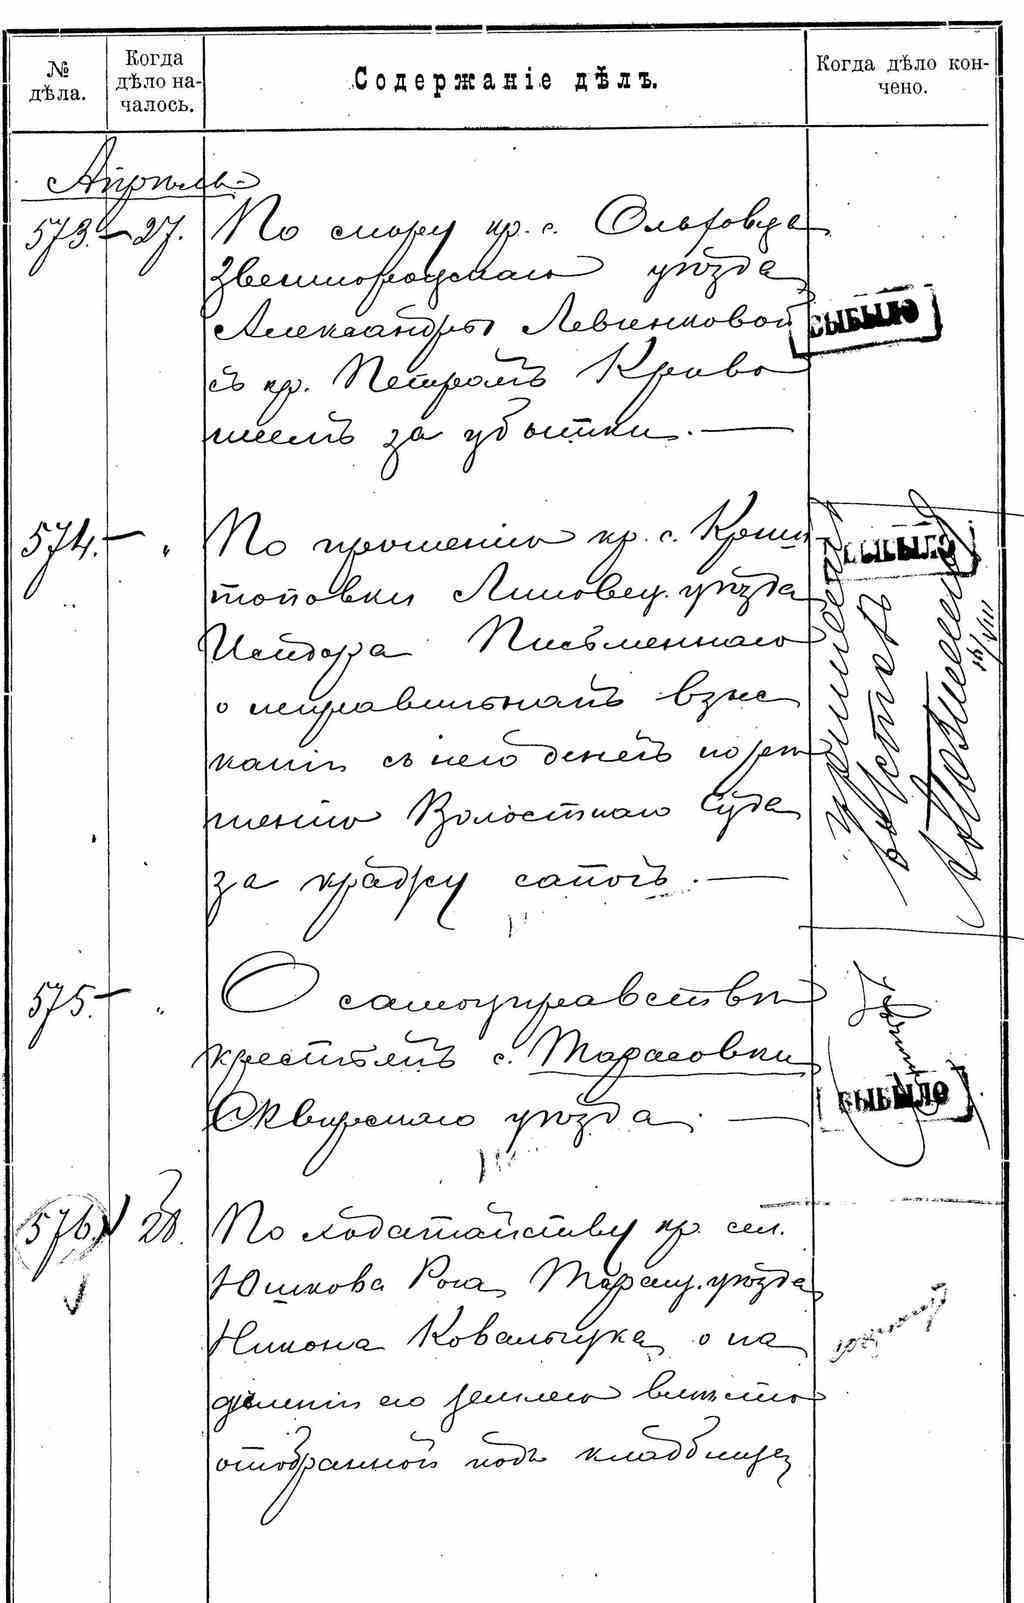 № дѣла.
Когда дѣло на-
чалось.
Содержаніе дѣлъ.
Когда дѣло кон-
чено.
Апрѣль
573. 27. По спору кр. с. Ольховца
Звенигородскаго уѣзда
Александры Левченковой
съ кр. Петромъ Криво
шеемъ за убытки.
ВЫБЫЛО
574. " По прошенію кр. с. Криш
топовки Липовец. уѣзда
Исидора Письменнаго
о неправильномъ взыс
каніи съ него денегъ по рѣ
шенію Волостнаго Суда
за крадку сапогъ.
ВЫБЫЛО
575. " О самоуправствѣ
крестьянъ с. Тарасовки
Сквирскаго уѣзда.
ВЫБЫЛО
576. 28. По ходатайству кр. сел.
Юшкова Рога, Таращ. уѣзда
Никона Ковальчука, о на
дѣленіи его землею вмѣсто
отобранной подъ кладбище